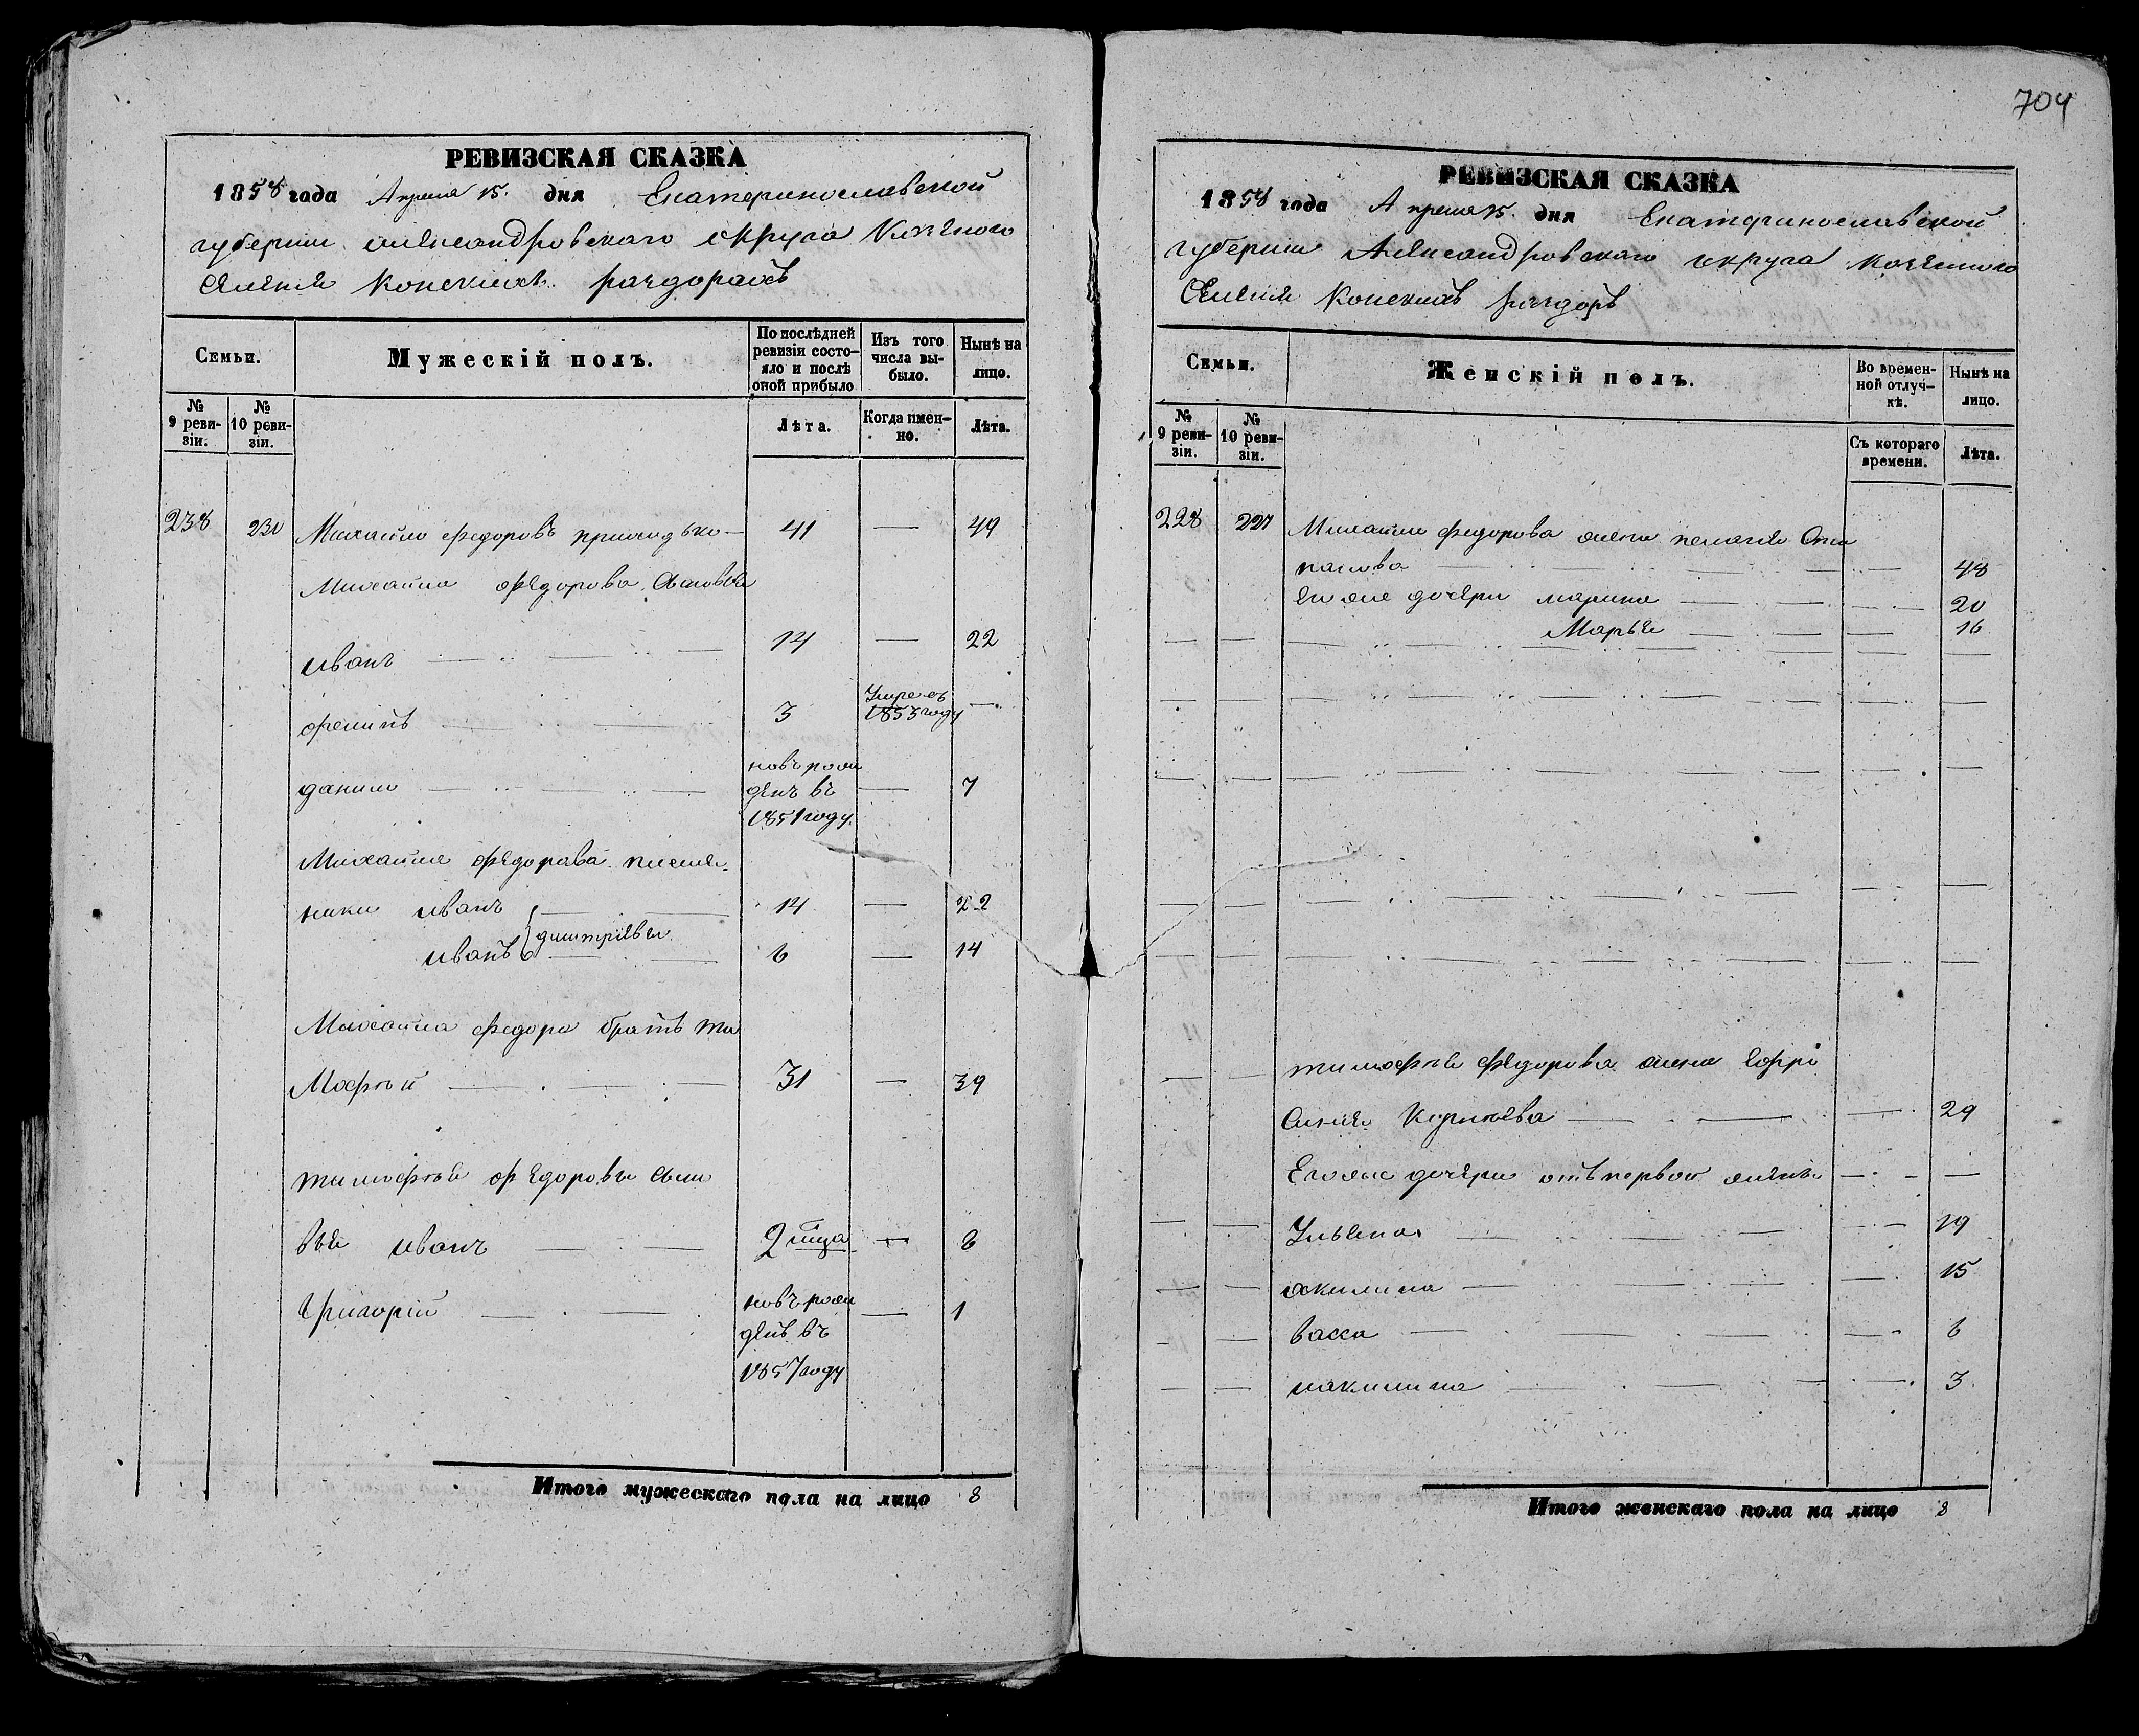 704
РЕВИЗСКАЯ СКАЗКА
1858 года Апреля 15. дня Екатеринославской
губернии александровскаго округа Казенного
Селения Конскихъ раздорахъ
Семьи.
Мужескій полъ.
По послѣдней ревизіи состо-
яло и послѣ
оной прибыло
Изъ того
числа вы-
было.
Нынѣ на
лицо.
№
9 реви-
зіи.
№
10 реви-
зіи.
Лѣта.
Когда имен-
но.
Лѣта.
238 230 Михайло федоровъ 41 — 49
Михайла федорова Сыновья
иванъ 14 — 22
3 Умре въ
1853 году —
данило новъ рож
денъ въ — 7
1851 году.
Михайла федорова племя.
ники иванъ 14 — 22
иванъ дмитріевы 6 — 14
Михайла федора братъ ти
Мофѣй 31 — 39
тимофѣя федорова сыно
вья иванъ 2 мца — 8
Григорій новъ рож — 1
денъ въ
1857 году
Итого мужескаго пола на лицо 8
РЕВИЗСКАЯ СКАЗКА
1858 года Апреля 15. дня Екатеринославской
губернии Александровскаго округа Казенного
Селения Конскихъ раздоръ
Семьи.
Женскій полъ.
Во времен-
ной отлуч-
кѣ.
Нынѣ на
лицо.
№
9 реви-
зіи.
№
10 реви-
зіи.
Съ котораго
времени.
Лѣта.
228 227 Михайла федорова жена пелагея
48
Его же дочери марина 20
Марья 16
тимофѣя федорова жена Ефро
Синья 29
Его же дочери отъ первой жены
Ульяна 19
акилина 15
васса 6
3
Итого женскаго пола на лицо 8